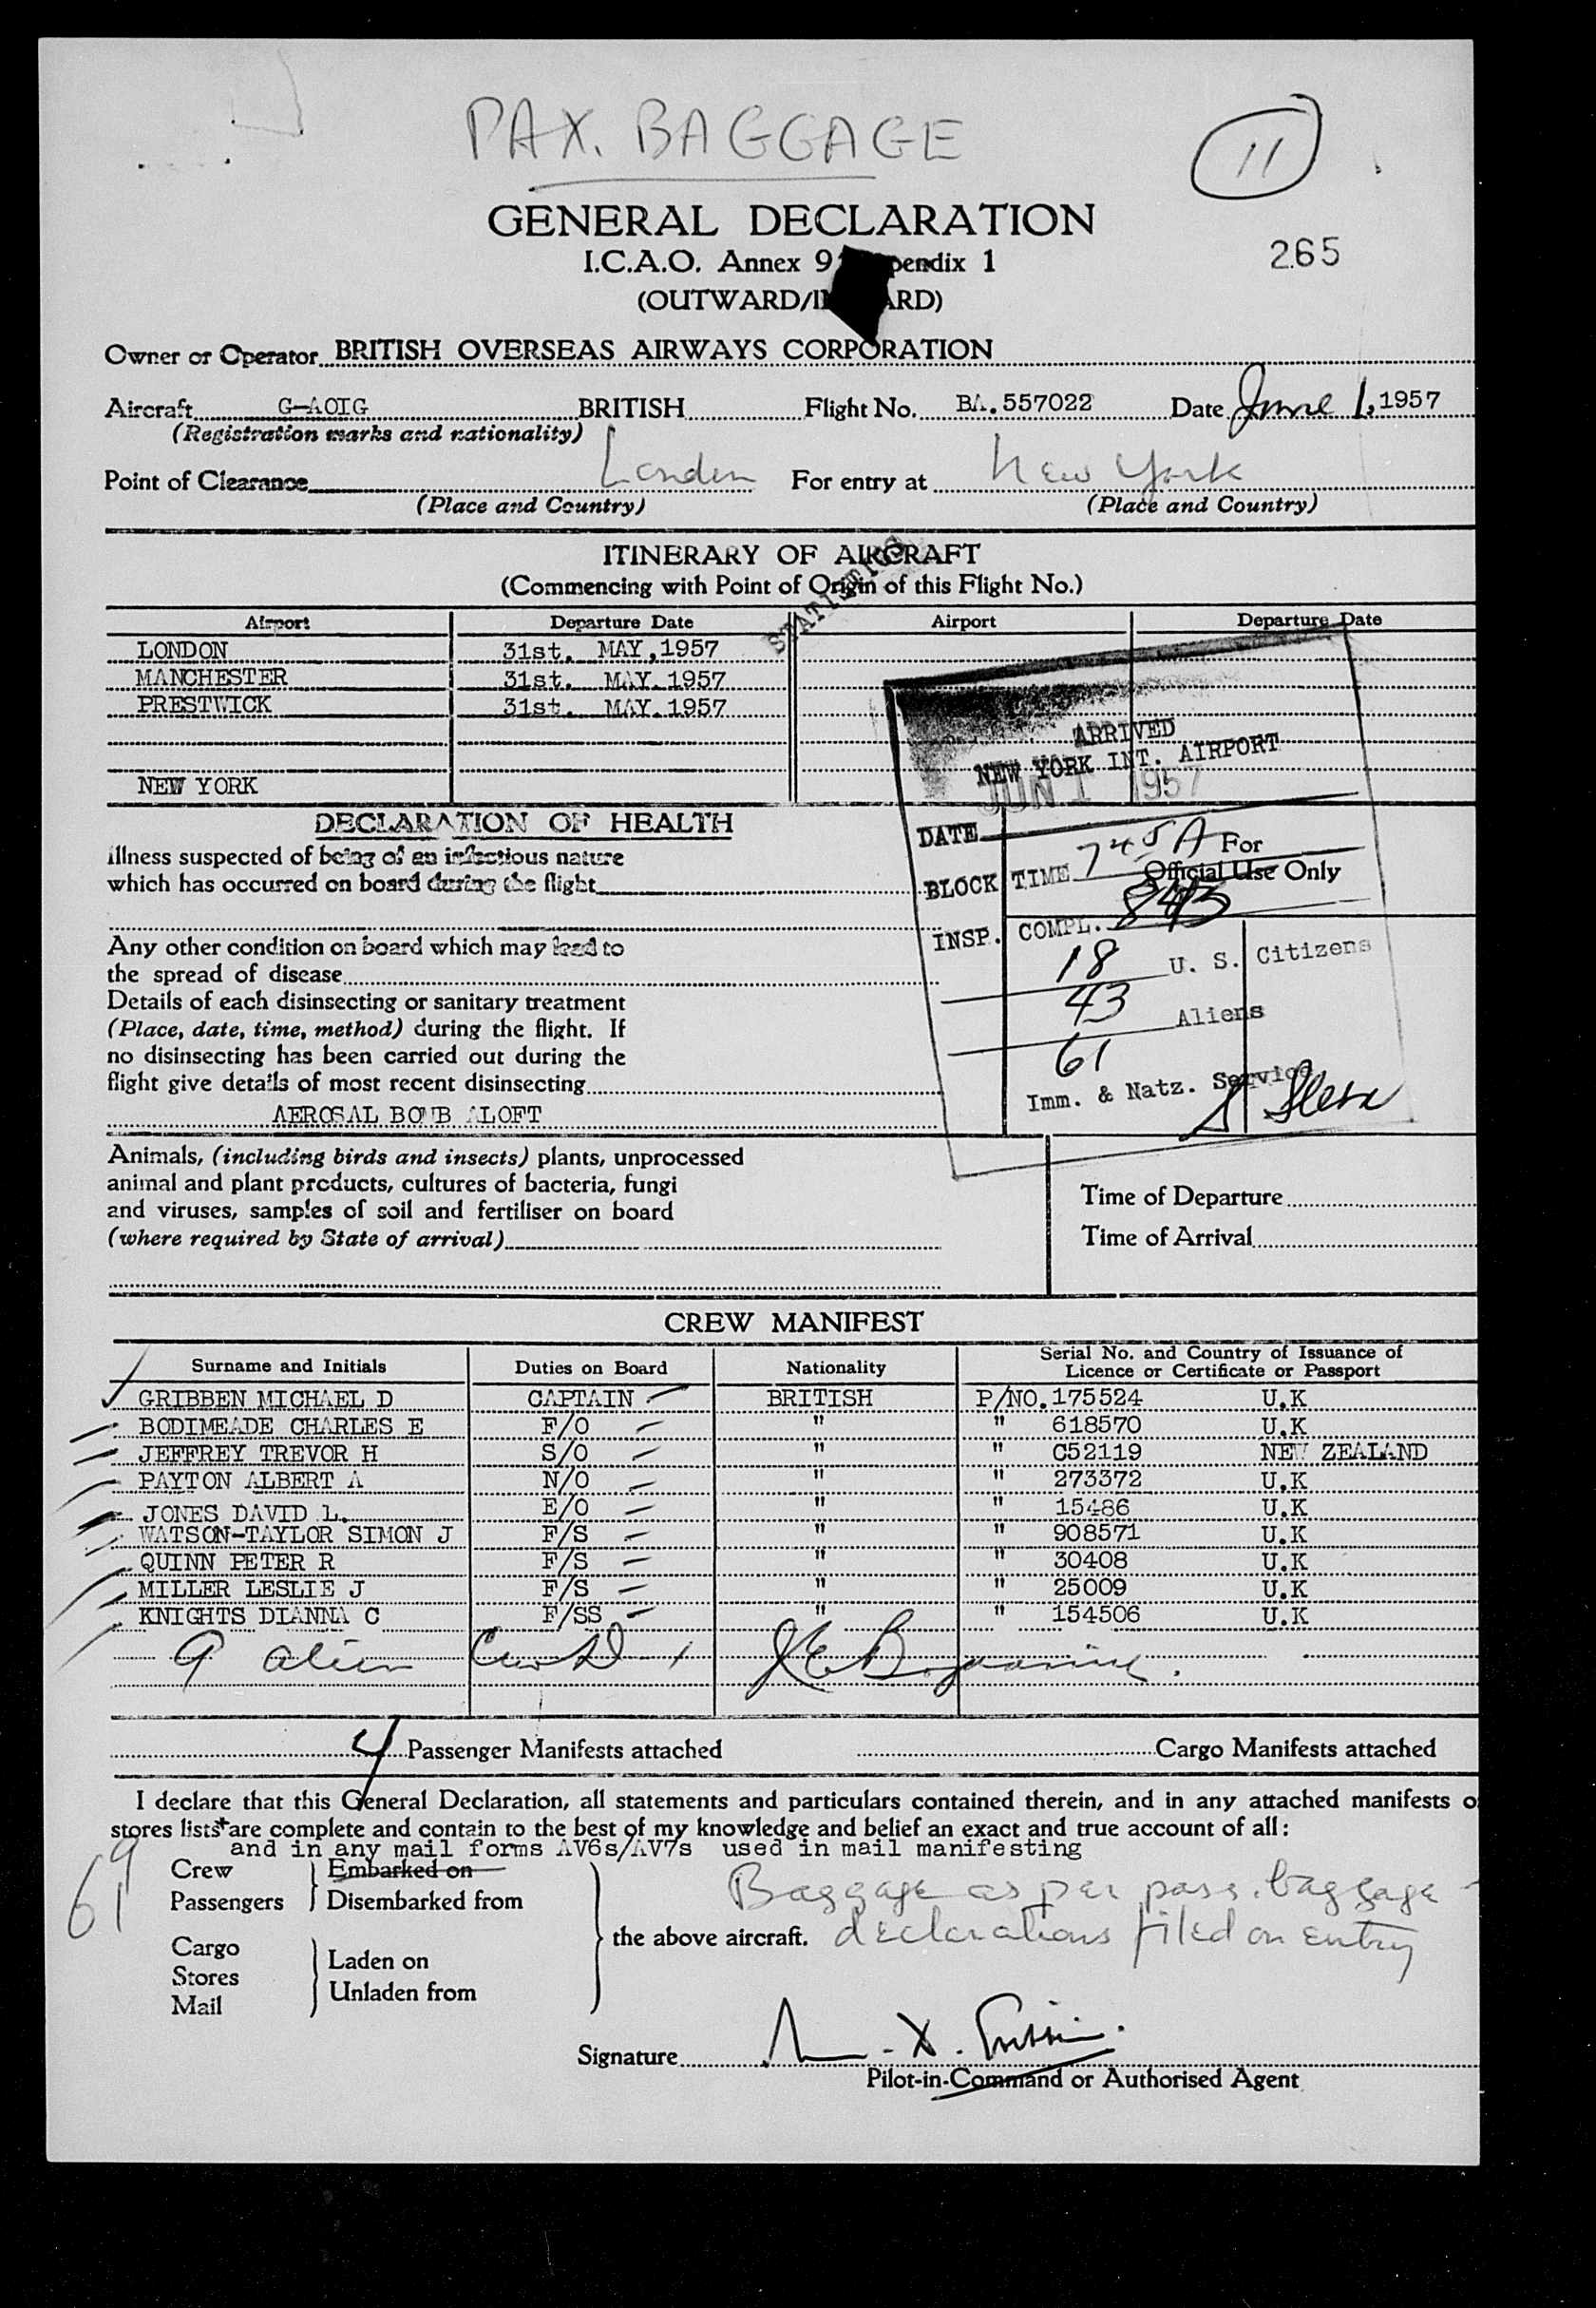 PAX. BAGGAGE
11
GENERAL DECLARATION
I.C.A.O. Annex 9 pendix 1
265
(OUTWARD/IN ARD)
Owner or Operator BRITISH OVERSEAS AIRWAYS CORPORATION
Aircraft G-AOIG BRITISH Flight No. BA.557022 Date June 1, 1957
(Registration marks and nationality)
Point of Clearance London For entry at New York
(Place and Country) (Place and Country)
ITINERARY OF AIRCRAFT
(Commencing with Point of Origin of this Flight No.)
STATISTICS
Airport Departure Date Airport Departure Date
LONDON 31st. MAY,1957
MANCHESTER 31st. MAY.1957
PRESTWICK 31st. MAY.1957
NEW YORK
ARRIVED
NEW YORK INT. AIRPORT
JUN 1 1957
DATE
BLOCK TIME 745A
INSP. COMPL. 845
18 U. S. Citizens
43 Aliens
61
Imm. & Natz. Service
For
Official Use Only
DECLARATION OF HEALTH
Illness suspected of being of an infectious nature
which has occurred on board during the flight
Any other condition on board which may lead to
the spread of disease
Details of each disinsecting or sanitary treatment
(Place, date, time, method) during the flight. If
no disinsecting has been carried out during the
flight give details of most recent disinsecting
AEROSAL BOMB ALOFT
Animals, (including birds and insects) plants, unprocessed
animal and plant products, cultures of bacteria, fungi
and viruses, samples of soil and fertiliser on board
(where required by State of arrival)
Time of Departure
Time of Arrival
CREW MANIFEST
Surname and Initials Duties on Board Nationality Serial No. and Country of Issuance of Licence or Certificate or Passport
GRIBBEN MICHAEL D CAPTAIN BRITISH P/NO.175524 U.K
BODIMEADE CHARLES E F/O " " 618570 U.K
JEFFREY TREVOR H S/O " " C52119 NEW ZEALAND
PAYTON ALBERT A N/O " " 273372 U.K
JONES DAVID L. E/O " " 15486 U.K
WATSON-TAYLOR SIMON J F/S " " 908571 U.K
QUINN PETER R F/S " " 30408 U.K
MILLER LESLIE J F/S " " 25009 U.K
KNIGHTS DIANNA C F/SS " " 154506 U.K
9 alien Crew
4 Passenger Manifests attached Cargo Manifests attached
I declare that this General Declaration, all statements and particulars contained therein, and in any attached manifests o
stores lists are complete and contain to the best of my knowledge and belief an exact and true account of all:
and in any mail forms AV6s/AV7s used in mail manifesting
9
61
Crew Embarked on
Passengers Disembarked from
Cargo Laden on
Stores
Mail Unladen from
the above aircraft.
Baggage as per pass. baggage
declarations filed on entry
Signature
Pilot-in-Command or Authorised Agent